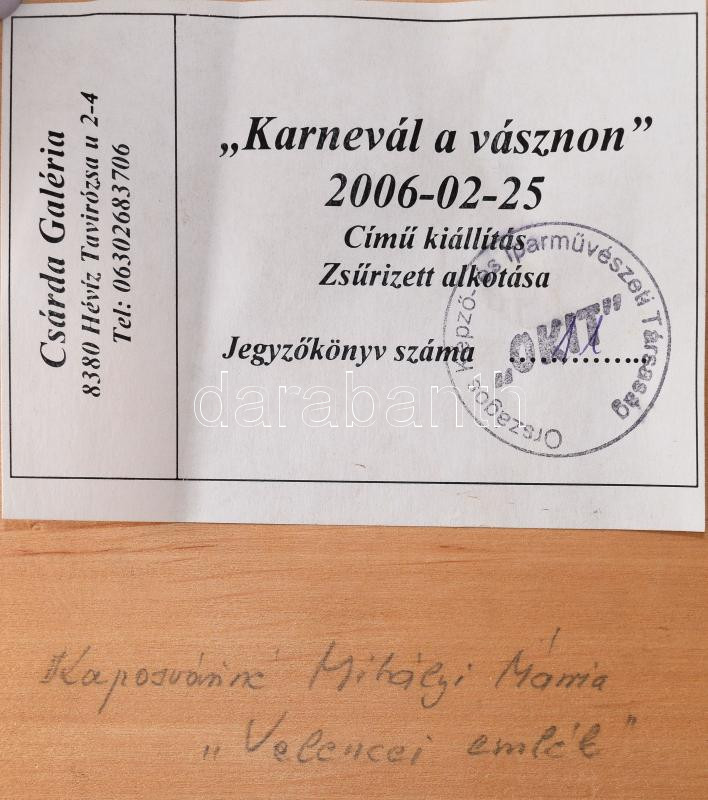 Csárda Galéria
8380 Hévíz Tavirózsa u 2-4
Tel: 06302683706
„Karnevál a vásznon”
2006-02-25
Című kiállítás
Zsűrizett alkotása
Jegyzőkönyv száma ..................
Országos Képző- és Iparművészeti Társaság
„OKIT”
darabanth
Kaposváriné Mihályi Mária
„Velencei emlék”